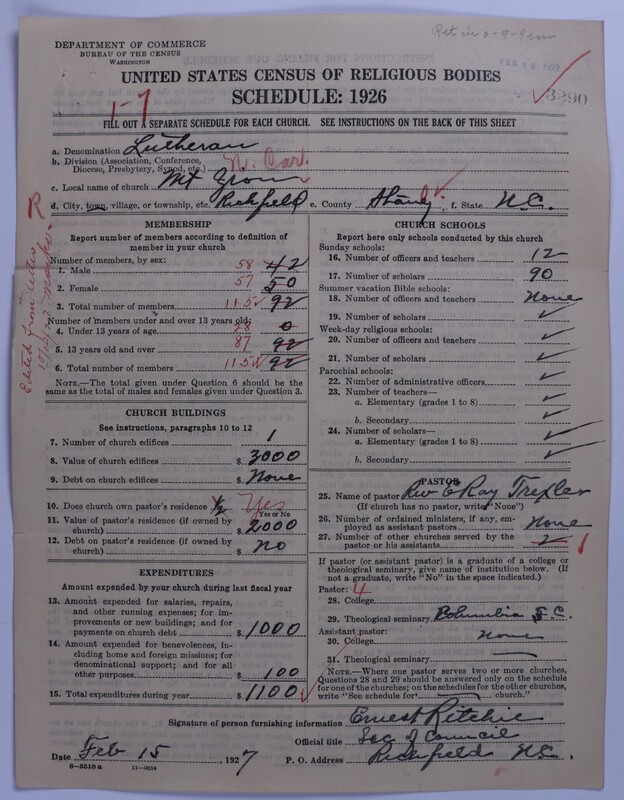 Ret in 3-9-9
DEPARTMENT OF COMMERCE
BUREAU OF THE CENSUS
WASHINGTON
UNITED STATES CENSUS OF RELIGIOUS BODIES
SCHEDULE: 1926
3290
1-7
FILL OUT A SEPARATE SCHEDULE FOR EACH CHURCH. SEE INSTRUCTIONS ON THE BACK OF THIS SHEET
a. Denomination Lutheran
b. Division (Association, Conference, Diocese, Presbytery, Synod, etc.) N. Car.
c. Local name of church Mt Zion
d. City, town, village, or township, etc. Richfield e. County Stanly f. State N.C.
MEMBERSHIP
Report number of members according to definition of
member in your church
Number of members, by sex:
1. Male 58 42
2. Female 57 50
3. Total number of members 115 92
Number of members under and over 13 years old:
4. Under 13 years of age 28 0
5. 13 years old and over 87 92
6. Total number of members 115 92
NOTE.—The total given under Question 6 should be the
same as the total of males and females given under Question 3.
CHURCH BUILDINGS
See instructions, paragraphs 10 to 12
7. Number of church edifices 1
8. Value of church edifices $ 3000
9. Debt on church edifices $ None
10. Does church own pastor's residence 1/2 Yes
Yes or No
11. Value of pastor's residence (if owned by
church) $ 2000
12. Debt on pastor's residence (if owned by
church) $ no
EXPENDITURES
Amount expended by your church during last fiscal year
13. Amount expended for salaries, repairs,
and other running expenses; for im-
provements or new buildings; and for
payments on church debt $ 1000
14. Amount expended for benevolences, in-
cluding home and foreign missions; for
denominational support; and for all
other purposes $ 100
15. Total expenditures during year $ 1100
CHURCH SCHOOLS
Report here only schools conducted by this church
Sunday schools:
16. Number of officers and teachers 12
17. Number of scholars 90
Summer vacation Bible schools:
18. Number of officers and teachers None
19. Number of scholars
Week-day religious schools:
20. Number of officers and teachers
21. Number of scholars
Parochial schools:
22. Number of administrative officers
23. Number of teachers—
a. Elementary (grades 1 to 8)
b. Secondary
24. Number of scholars—
a. Elementary (grades 1 to 8)
b. Secondary
PASTOR
25. Name of pastor Rev C Ray Trexler
(If church has no pastor, write "None")
26. Number of ordained ministers, if any, em-
ployed as assistant pastors None
27. Number of other churches served by the
pastor or his assistants 2 1
If pastor (or assistant pastor) is a graduate of a college or
theological seminary, give name of institution below. (If
not a graduate, write "No" in the space indicated.)
Pastor: 4
28. College
29. Theological seminary Columbia S.C.
Assistant pastor:
30. College none
31. Theological seminary
NOTE.—Where one pastor serves two or more churches,
Questions 28 and 29 should be answered only on the schedule
for one of the churches; on the schedules for the other churches,
write "See schedule for church."
Signature of person furnishing information Ernest Ritchie
Official title Sec of Council
Date Feb 15 1927 P. O. Address Richfield N.C.
8—5518 a 11—9554